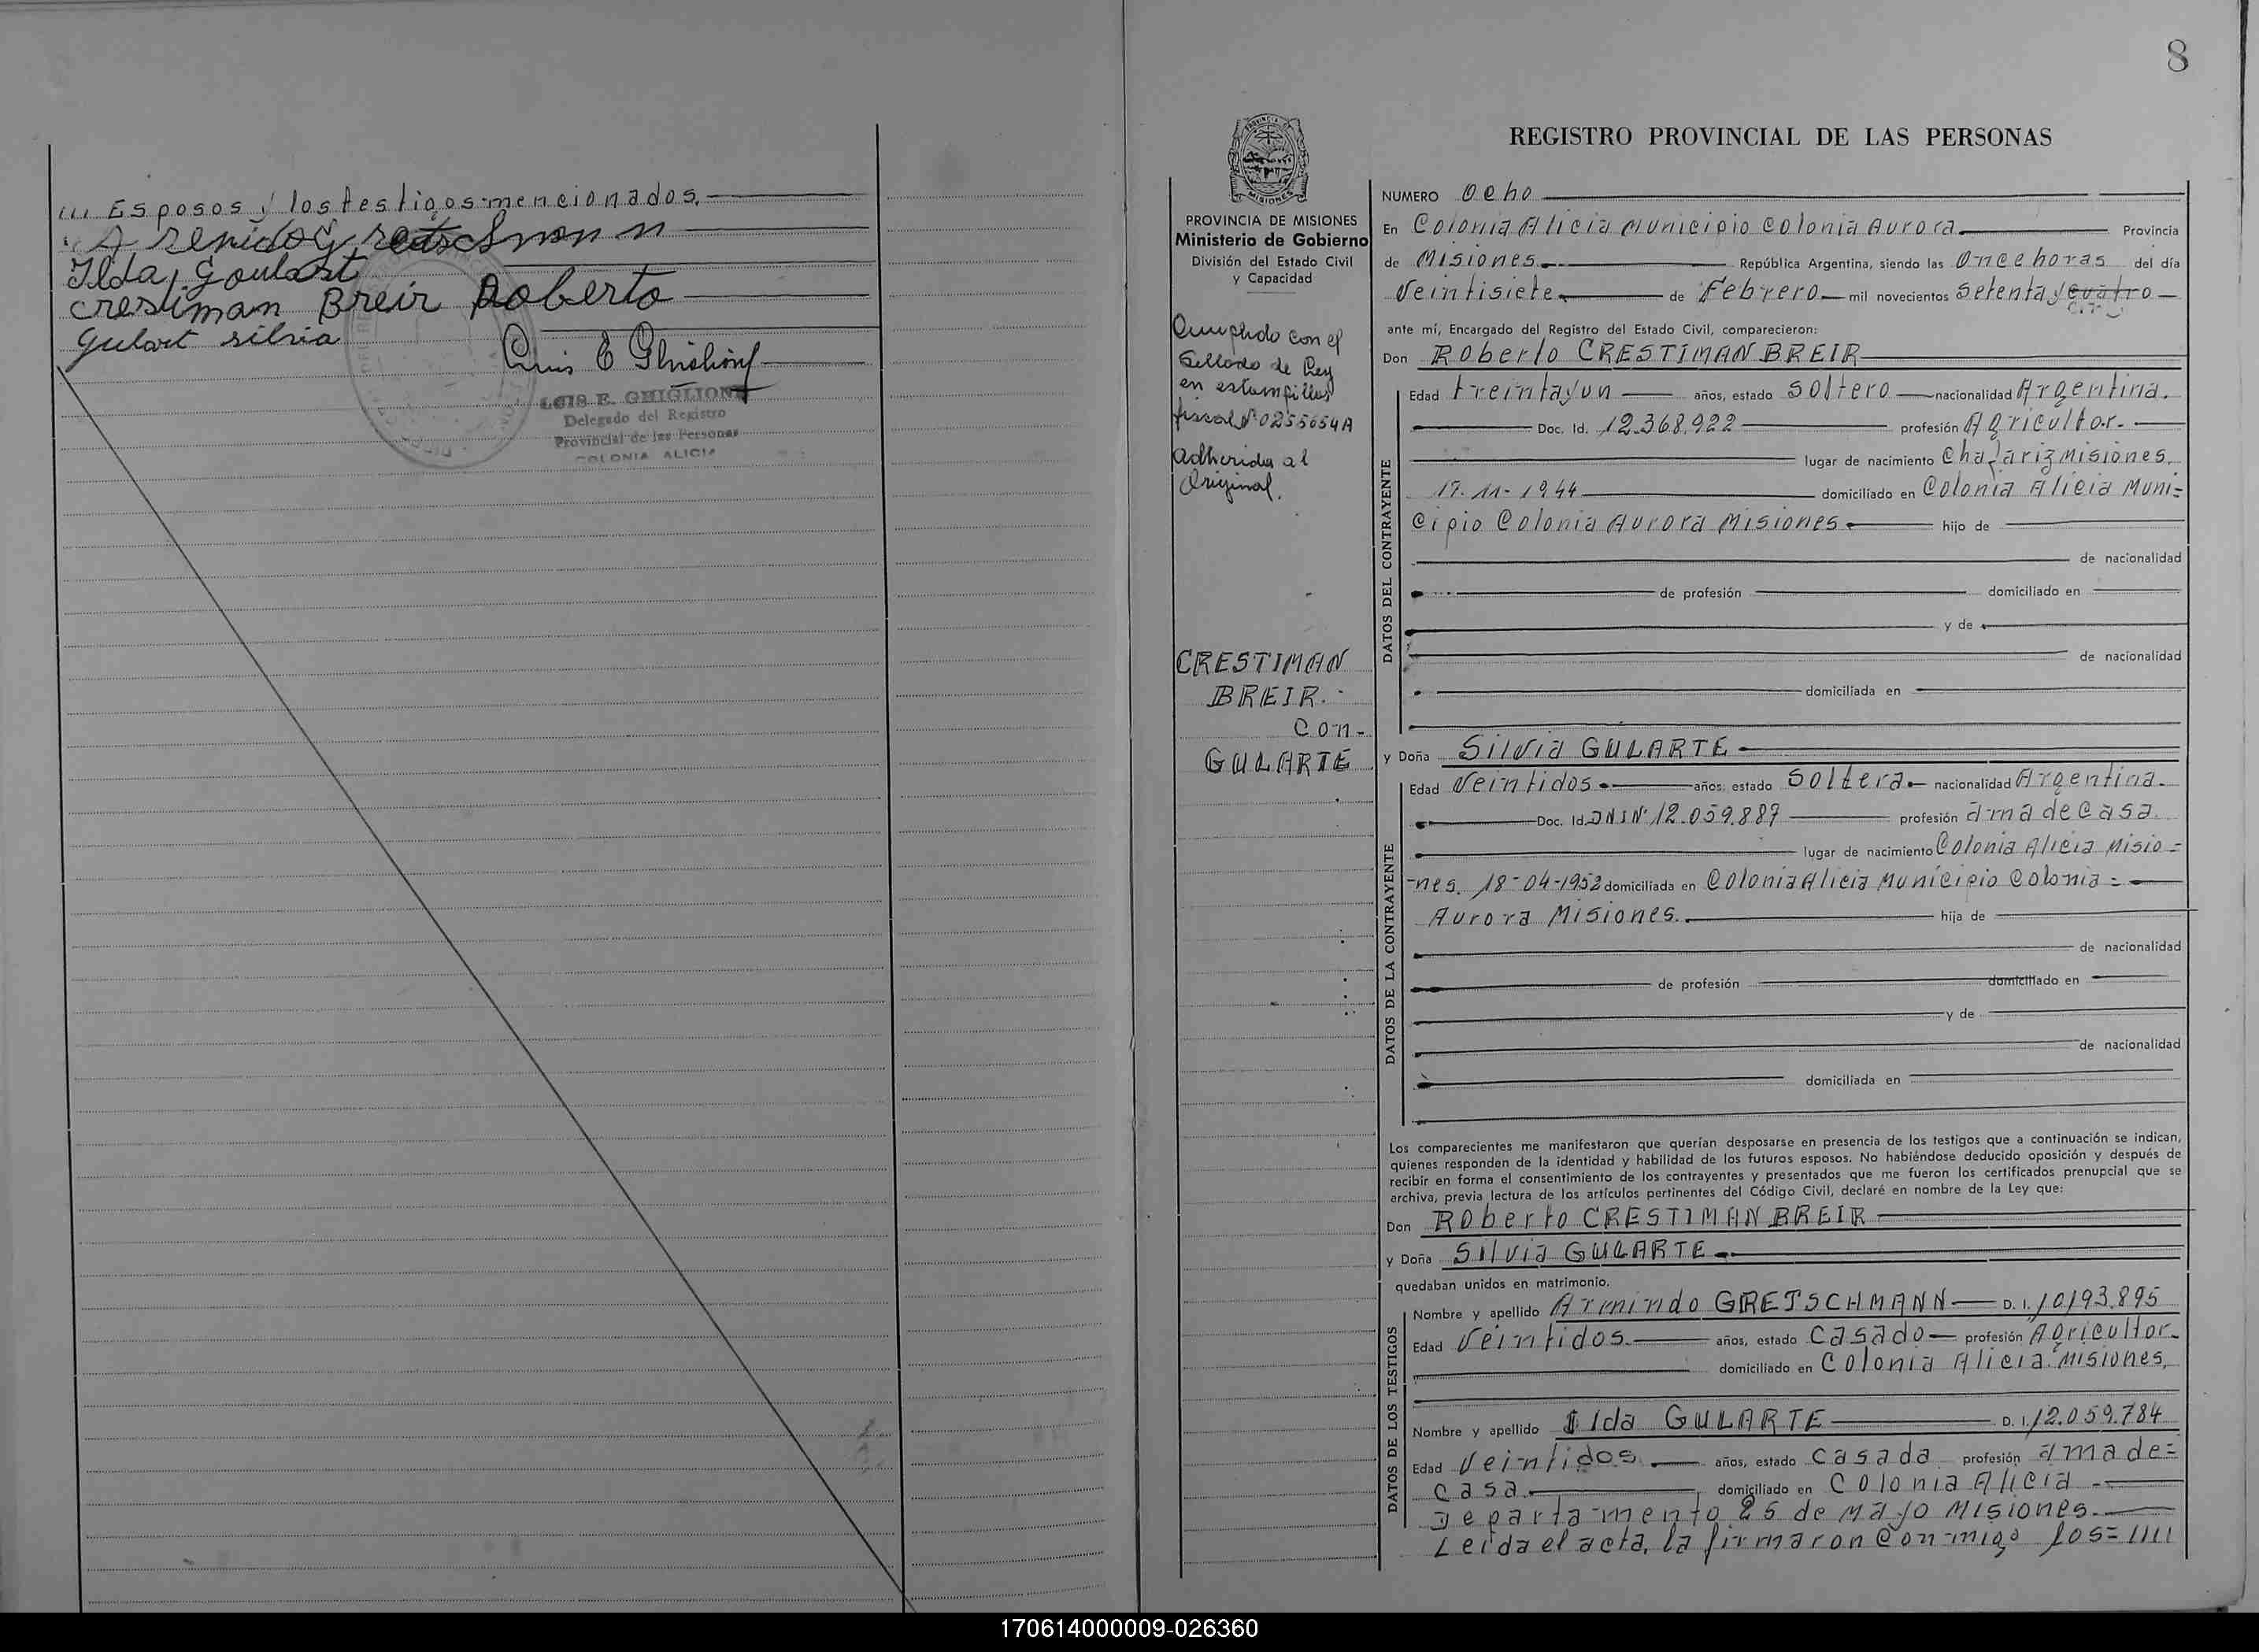 //// Esposos y los testigos mencionados.
Ilda Goulart
crestiman Breir Roberto
Gulart silvia
Luis E Ghiglione
LUIS E. GHIGLIONE
Delegado del Registro
Provincial de las Personas
COLONIA ALICIA
8
PROVINCIA DE MISIONES
Ministerio de Gobierno
División del Estado Civil
y Capacidad
Cumplido con el
Sellado de Ley
en estampillas
fiscal Nº 0255654A
adherida al
Original.
CRESTIMAN
BREIR.
con-
GULARTE
REGISTRO PROVINCIAL DE LAS PERSONAS
NUMERO Ocho
En Colonia Alicia Municipio Colonia Aurora. Provincia
de Misiones. República Argentina, siendo las Once horas del día
Veintisiete de Febrero mil novecientos setenta y cuatro
ante mí, Encargado del Registro del Estado Civil, comparecieron:
Don Roberto CRESTIMAN BREIR
DATOS DEL CONTRAYENTE
Edad treintayun años, estado soltero nacionalidad Argentina.
Doc. Id. 12.368.922 profesión Agricultor.
lugar de nacimiento Chafariz Misiones.
17-11-1944 domiciliado en Colonia Alicia Muni=
cipio Colonia Aurora Misiones hijo de
de nacionalidad
de profesión domiciliado en
y de
de nacionalidad
domiciliada en
y Doña Silvia GULARTE
DATOS DE LA CONTRAYENTE
Edad Veintidos años, estado Soltera nacionalidad Argentina.
Doc. Id. DNI Nº 12.059.887 profesión ama de casa.
lugar de nacimiento Colonia Alicia Misio=
-nes. 18-04-1952 domiciliada en Colonia Alicia Municipio Colonia=
Aurora Misiones. hija de
de nacionalidad
de profesión domiciliado en
y de
de nacionalidad
domiciliada en
Los comparecientes me manifestaron que querían desposarse en presencia de los testigos que a continuación se indican,
quienes responden de la identidad y habilidad de los futuros esposos. No habiéndose deducido oposición y después de
recibir en forma el consentimiento de los contrayentes y presentados que me fueron los certificados prenupcial que se
archiva, previa lectura de los artículos pertinentes del Código Civil, declaré en nombre de la Ley que:
Don Roberto CRESTIMAN BREIR
y Doña Silvia GULARTE
quedaban unidos en matrimonio.
DATOS DE LOS TESTIGOS
Nombre y apellido Armindo GRETSCHMANN D. I. 10.193.895
Edad Veintidos. años, estado Casado profesión Agricultor
domiciliado en Colonia Alicia. Misiones.
Nombre y apellido Ilda GULARTE D. I. 12.059.784
Edad Veintidos años, estado casada profesión ama de=
casa. domiciliado en Colonia Alicia
Departamento 25 de Mayo Misiones.
Leida el acta, la firmaron conmigo los= ////
170614000009-026360